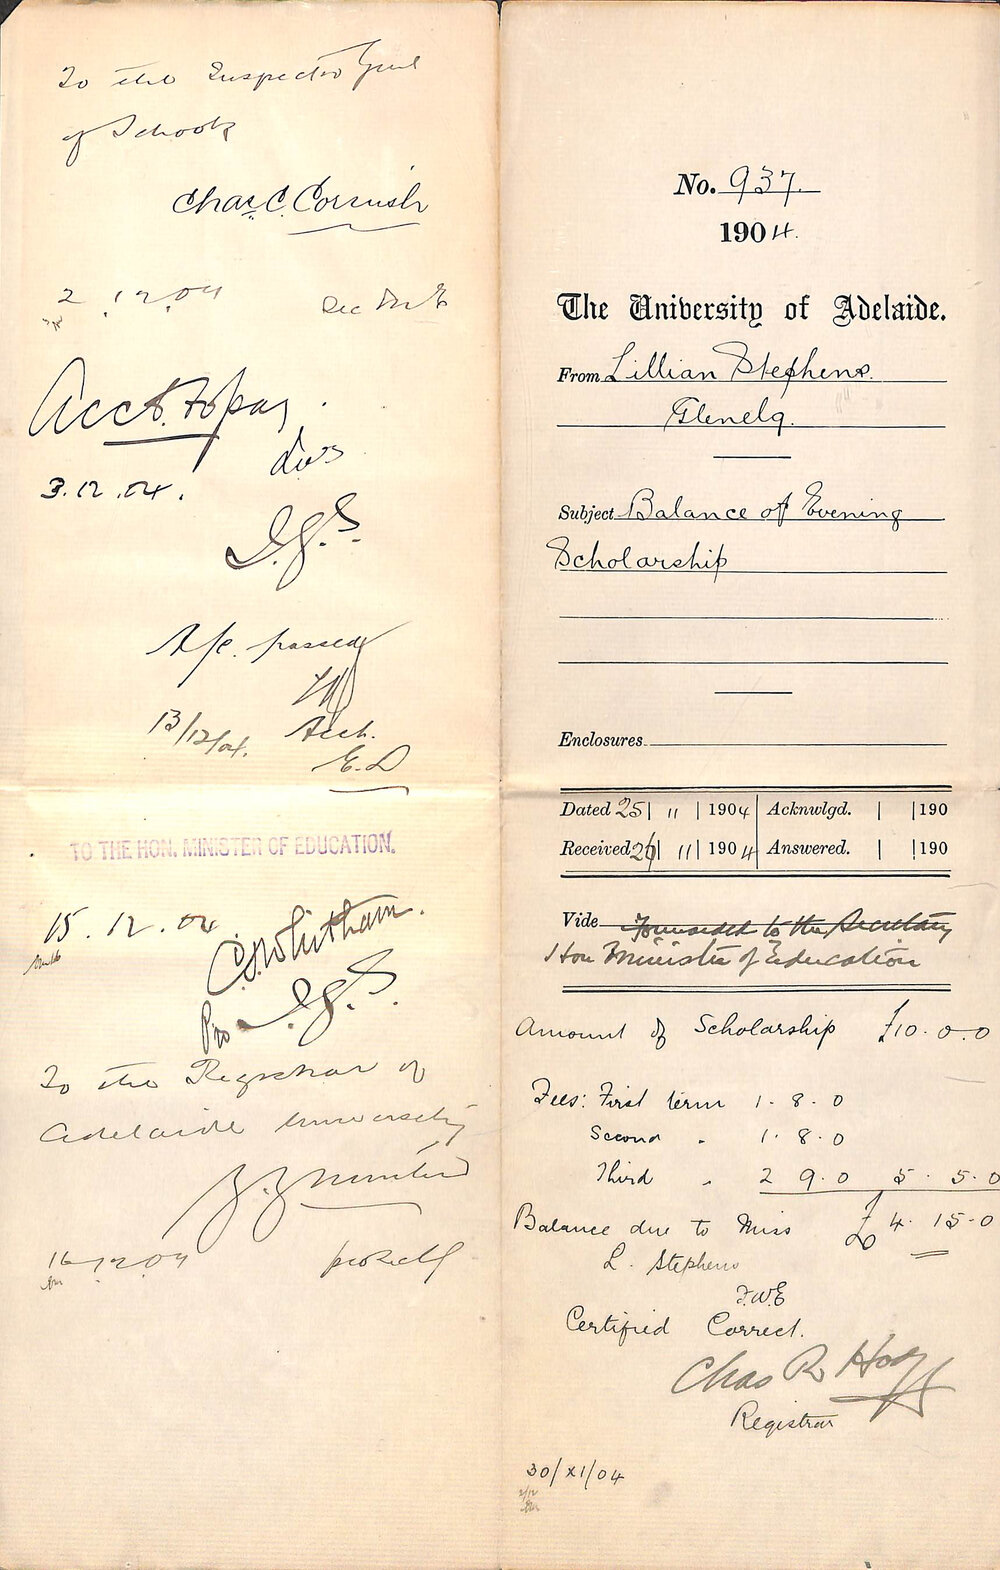 To the Inspector Genl
of Schools
Chas. C. Cornish
2.12.04 Sec Mr E
Acct. to pay.
3.12.04.
I.G.S.
A/c. passed
Acct.
13/12/04.
E.D
TO THE HON. MINISTER OF EDUCATION.
15.12.04
C.S. Whitham.
Pro I.G.S.
To the Registrar of
Adelaide University
16-12-04
No. 937.
1904.
The University of Adelaide.
From Lillian Stephens.
Glenelg.
Subject Balance of Evening
Scholarship
Enclosures
Dated 25 | 11 | 1904 Acknwlgd. | | 190
Received 26 | 11 | 1904 Answered. | | 190
Vide Forwarded to the Secretary
Hon Minister of Education
Amount of Scholarship £10.0.0
Fees: First term 1.8.0
Second " 1.8.0
Third " 2 9.0 5.5.0
Balance due to Miss £4.15.0
L. Stephens
F.W.E
Certified Correct.
Chas R Hodge
Registrar
30/XI/04